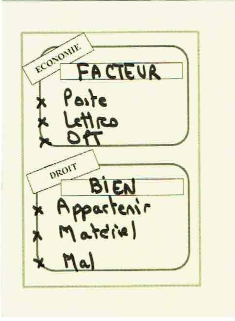 ECONOMIE
FACTEUR
x Poste
x Lettres
x OPT
DROIT
BIEN
x Appartenir
x Matériel
x Mal